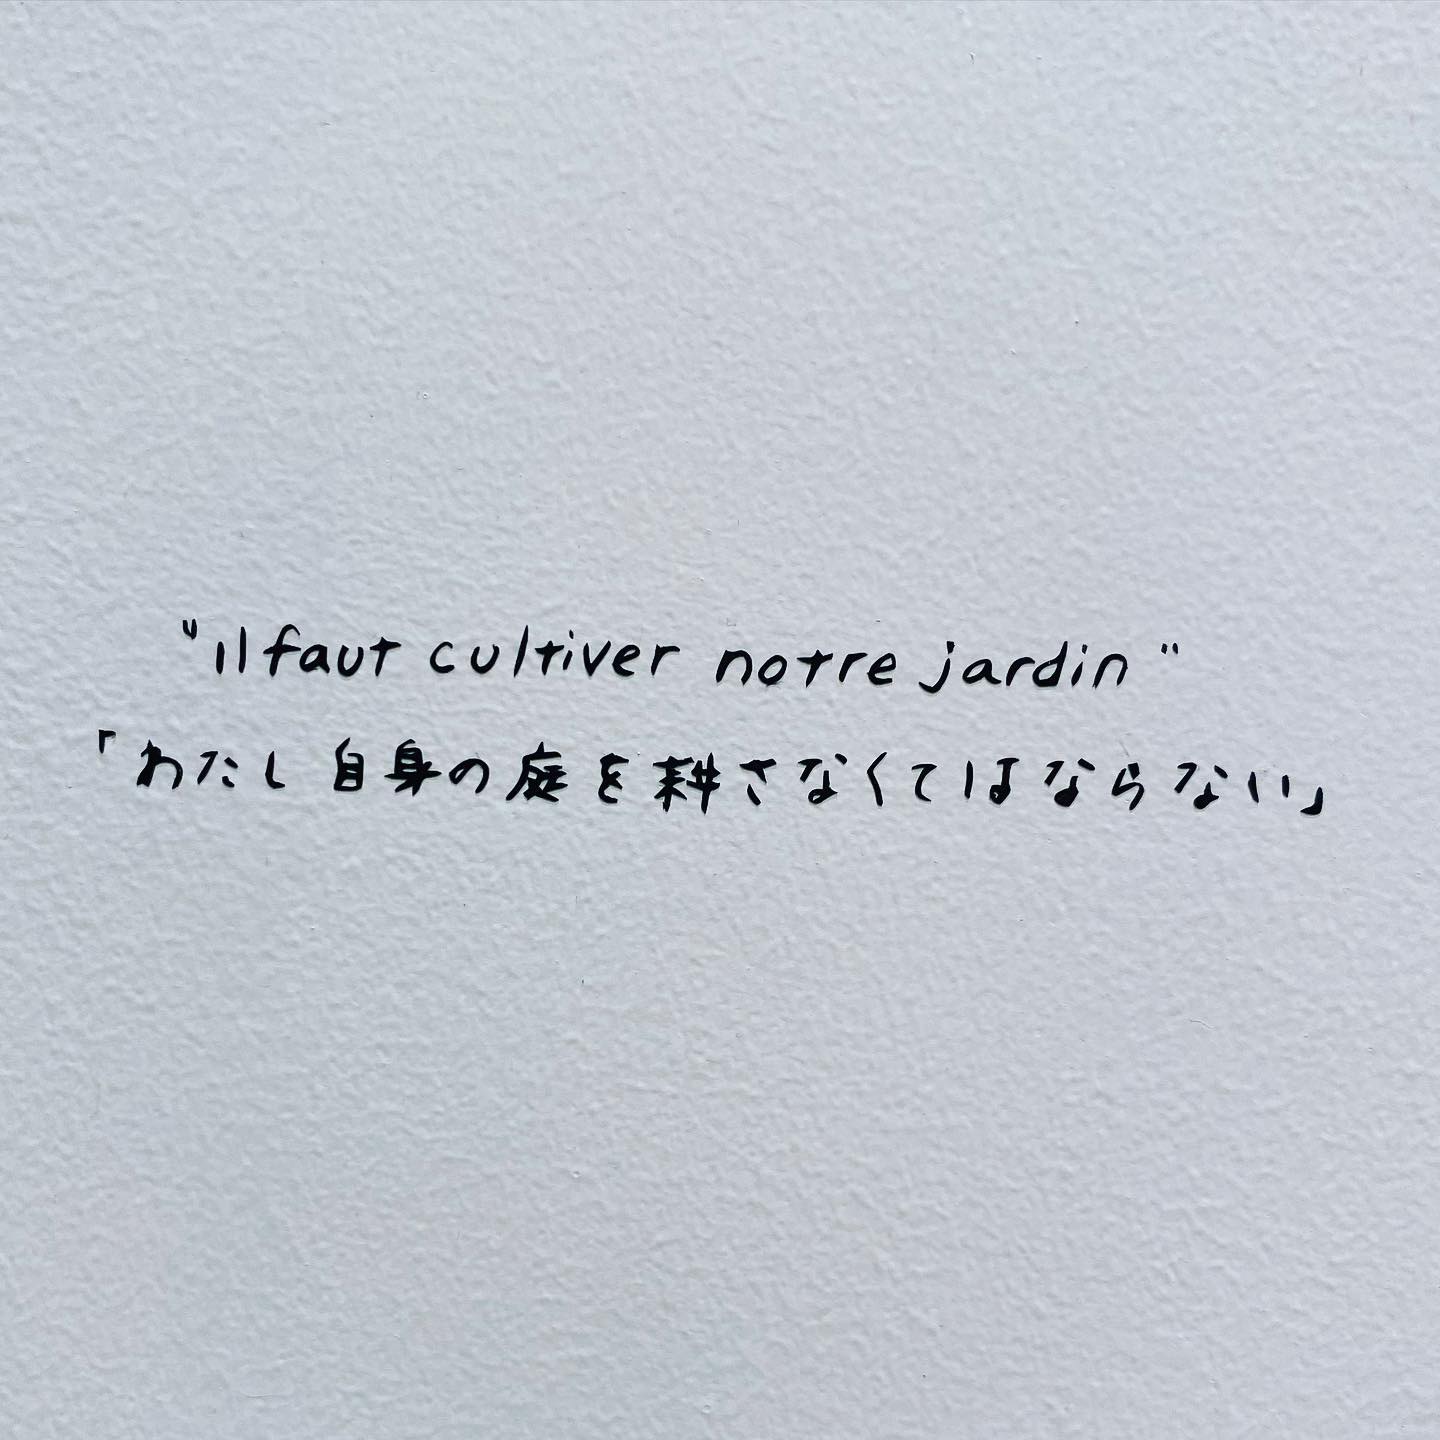 "il faut cultiver notre jardin"
「わたし自身の庭を耕さなくてはならない」